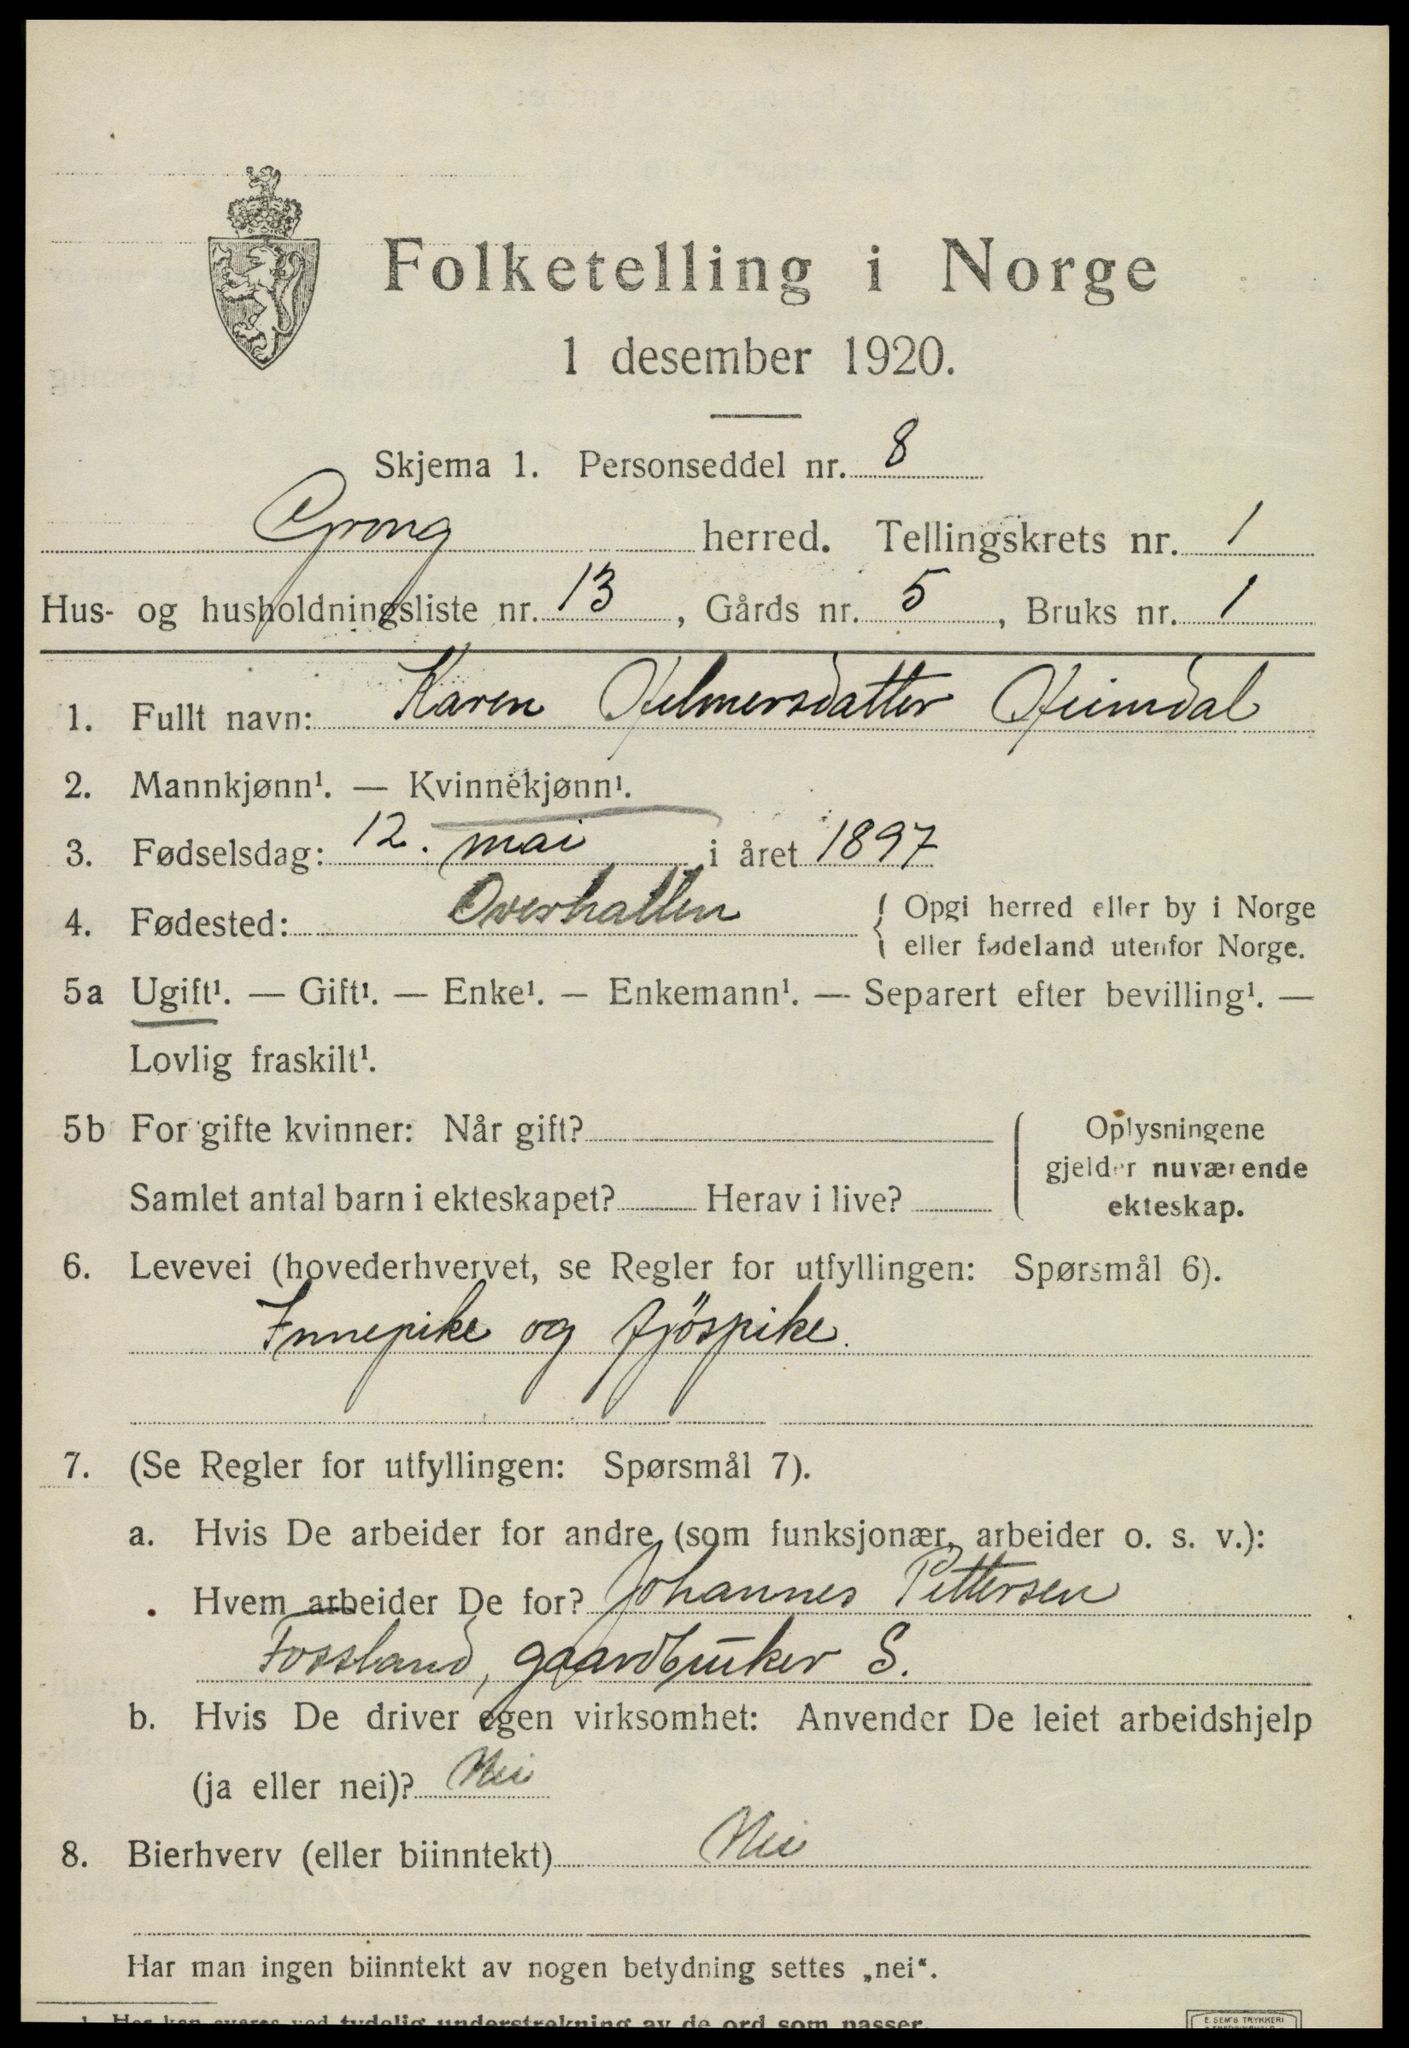 Folketelling i Norge
1 desember 1920.
Skjema 1. Personseddel nr. 8
Grong herred. Tellingskrets nr. 1
Hus- og husholdningsliste nr. 13, Gårds nr. 5, Bruks nr. 1
1. Fullt navn: Karen Helmersdatter Heimdal
2. Mannkjønn¹. — Kvinnekjønn¹.
3. Fødselsdag: 12. mai i året 1897
4. Fødested: Overhallen { Opgi herred eller by i Norge
eller fødeland utenfor Norge.
5a Ugift¹. — Gift¹. — Enke¹. — Enkemann¹. — Separert efter bevilling¹. —
Lovlig fraskilt¹.
5b For gifte kvinner: Når gift? ( Oplysningene
gjelder nuværende
Samlet antal barn i ekteskapet? Herav i live? ekteskap.
6. Levevei (hovederhvervet, se Regler for utfyllingen: Spørsmål 6).
Innepike og fjöspike.
7. (Se Regler for utfyllingen: Spørsmål 7).
a. Hvis De arbeider for andre (som funksjonær, arbeider o. s. v.):
Hvem arbeider De for? Johannes Pettersen
Fossland, gaardbruker S.
b. Hvis De driver egen virksomhet: Anvender De leiet arbeidshjelp
(ja eller nei)? Nei
8. Bierhverv (eller biinntekt) Nei
Har man ingen biinntekt av nogen betydning settes „nei“.
1. Her kan svares ved tydelig understrekning av de ord som passer.
E. SEM'S TRYKKERI